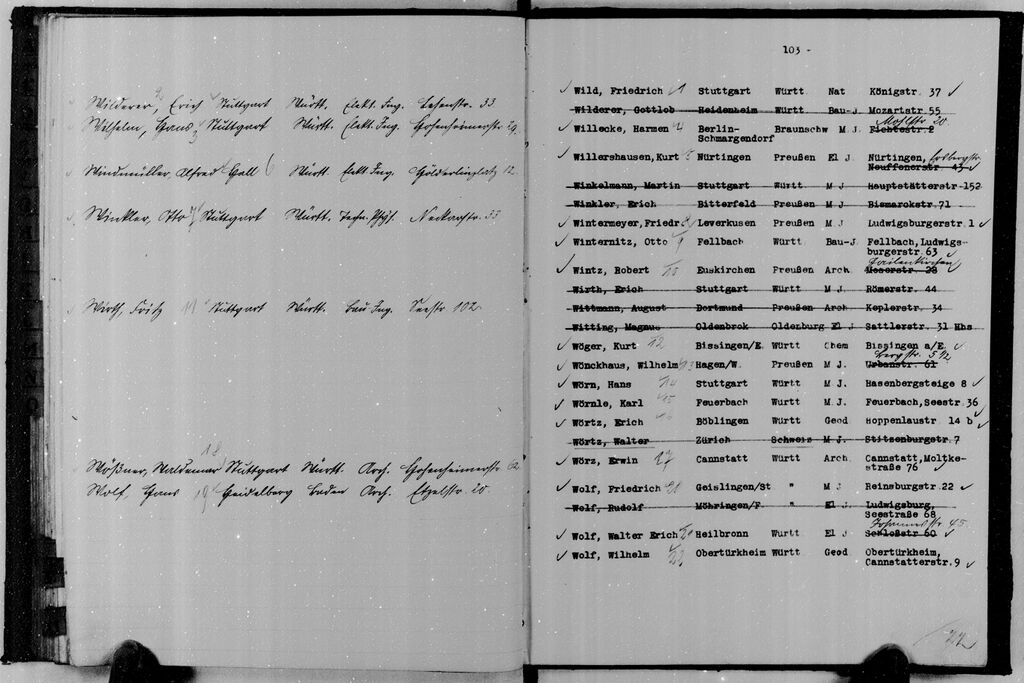 Wilderer, Erich Stuttgart Württ. Elekt. Ing. Lehenstr. 33
Wilhelm, Hans, Stuttgart Württ. Elekt. Ing. Hohenheimerstr. 29
Windmüller, Alfred Hall Württ. Elekt. Ing. Hölderlinplatz 12
Winkler, Otto Stuttgart Württ. Techn. Phys. Neckarstr. 53
Wirth, Fritz 11 Stuttgart Württ. Bau Ing. Seestr 102
18
Wößner, Waldemar Stuttgart Württ. Arch. Hohenheimerstr
Wolf, Hans 19 Heidelberg Baden Arch. Etzelstr. 20
103 -
Wild, Friedrich 1 Stuttgart Württ Nat Königstr. 37
Wilderer, Gottlob Heidenheim Württ Bau-J Mozartstr 55
Willecke, Harmen 4 Berlin- Braunschw M J. Fichtestr 2 Mohlstr 20
Schmargendorf
Willershausen, Kurt 5 Nürtingen Preußen El J Nürtingen,
Neuffenerstr 43
Winkelmann, Martin Stuttgart Württ M J Hauptstätterstr 152
Winkler, Erich Bitterfeld Preußen M J Bismarckstr 71
Wintermeyer, Friedr 8 Leverkusen Preußen M J Ludwigsburgerstr 1
Winternitz, Otto 9 Fellbach Württ Bau-J. Fellbach, Ludwigs-
burgerstr 63
Wintz, Robert 10 Euskirchen Preußen Arch Moserstr 28
Wirth, Erich Stuttgart Württ M J Römerstr 44
Wittmann, August Dortmund Preußen Arch Keplerstr 34
Witting, Magnus Oldenbrok Oldenburg El J Sattlerstr. 31 Hhs
Wöger, Kurt 12 Bissingen/E. Württ Chem Bissingen a/E.
Bergstr. 5 1/2
Wönckhaus, Wilhelm 13 Hagen/W. Preußen M J. Urbanstr 61
Wörn, Hans 14 Stuttgart Württ M J. Hasenbergsteige 8
Wörnle, Karl 15 Feuerbach Württ M J. Feuerbach, Seestr 36
Wörtz, Erich 16 Böblingen Württ Geod Hoppenlaustr 14 b
Wörtz, Walter Zürich Schweiz M J. Stitzenburgstr 7
Wörz, Erwin 17 Cannstatt Württ Arch. Cannstatt, Moltke-
straße 76
Wolf, Friedrich 20 Geislingen/St " M J Reinsburgstr 22
Wolf, Rudolf Möhringen/F " El J Ludwigsburg,
Seestraße 68
Johannesstr 45
Wolf, Walter Erich 21 Heilbronn Württ El J Schloßstr 60
Wolf, Wilhelm 22 Obertürkheim Württ Geod Obertürkheim,
Cannstatterstr. 9